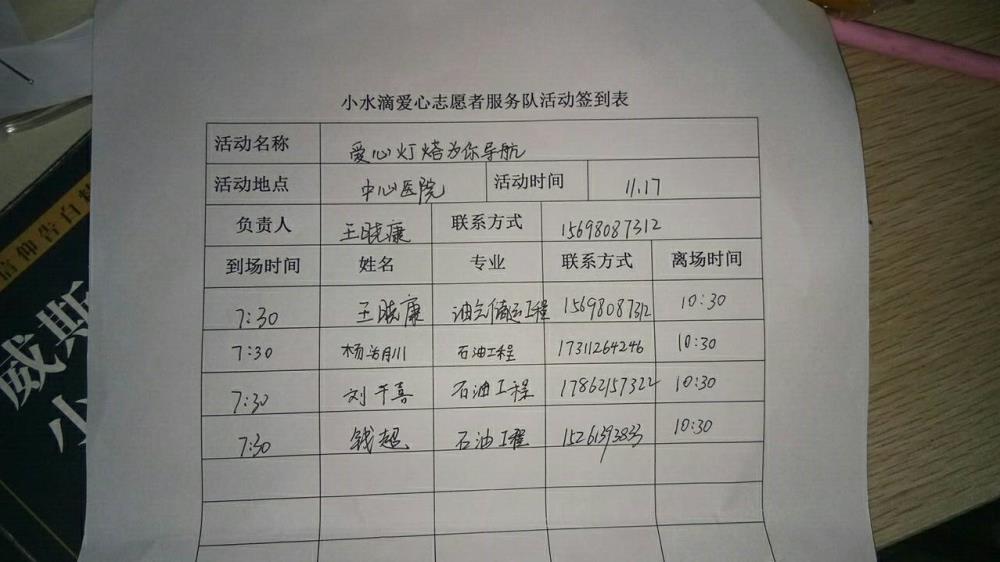 小水滴爱心志愿者服务队活动签到表
活动名称 爱心灯塔为你导航
活动地点 中心医院 活动时间 11.17
负责人 王晓康 联系方式 15698087312
到场时间 姓名 专业 联系方式 离场时间
7:30 王晓康 油气储运工程 15698087312 10:30
7:30 杨 川 石油工程 17311264246 10:30
7:30 刘千喜 石油工程 17862157322 10:30
7:30 钱超 石油工程 10:30
信仰告白
威斯
小